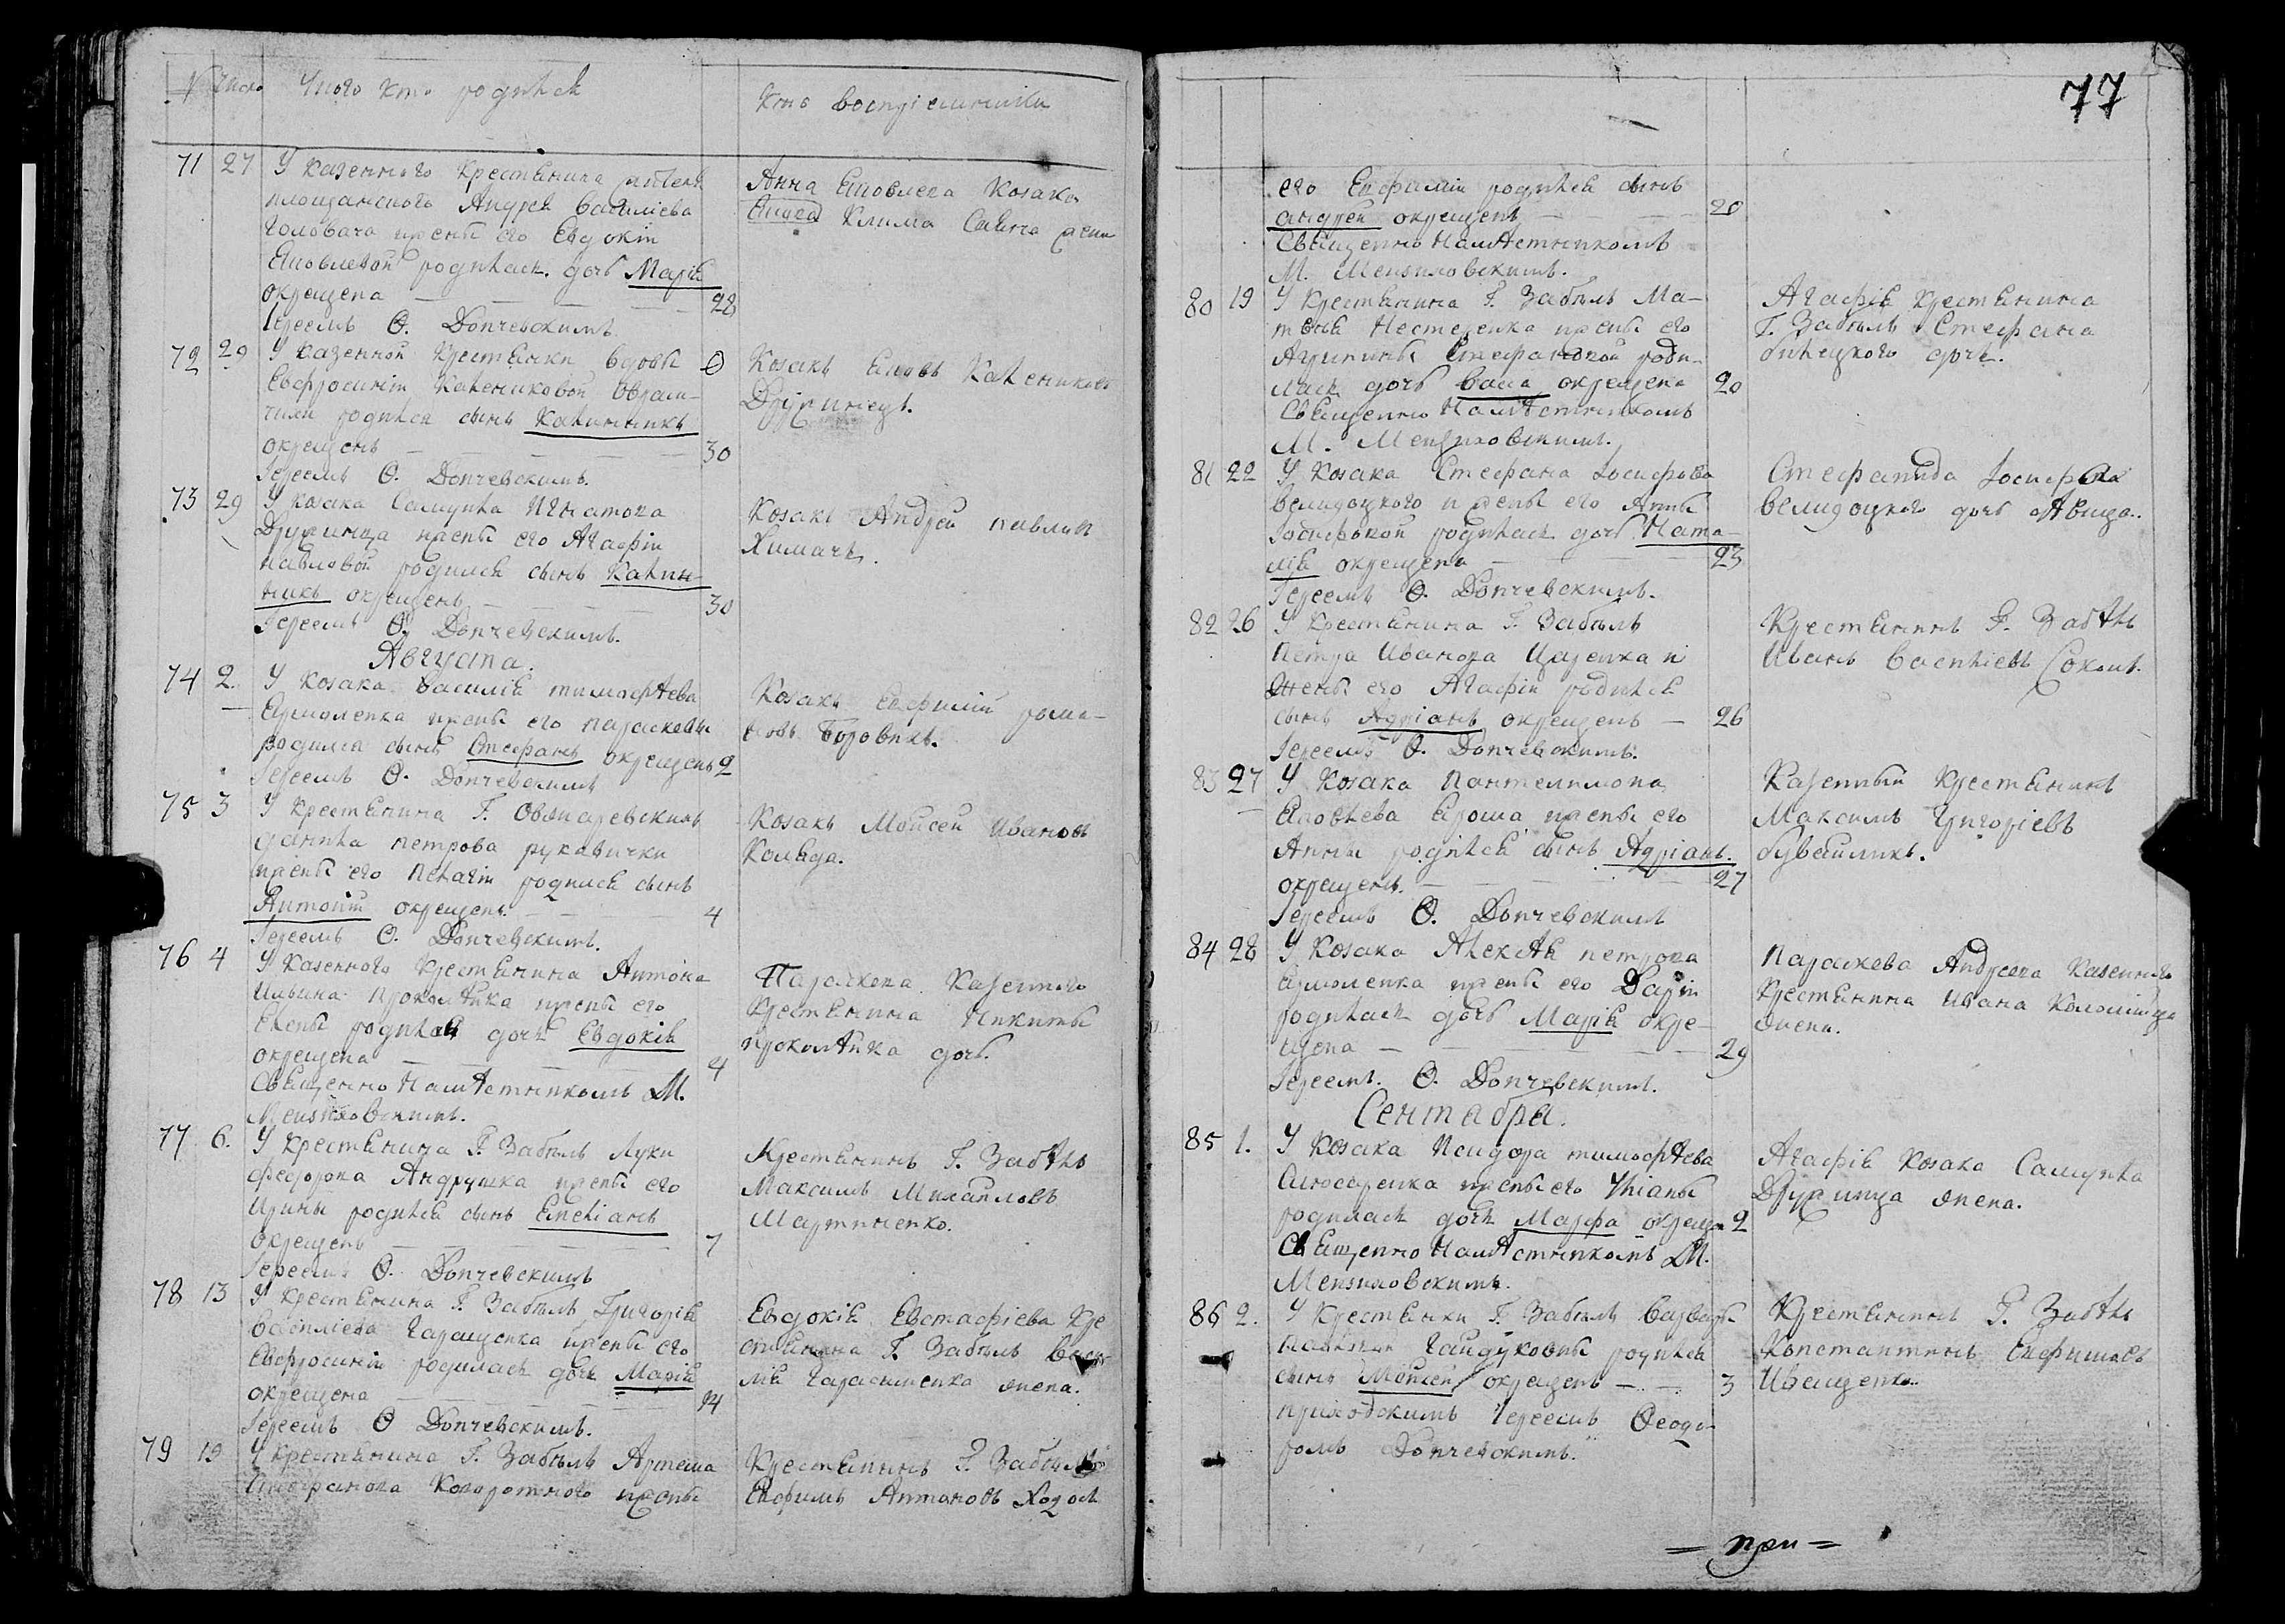 № Число У кого кто родился
Кто воспріемники
71 27 У казеннаго Крестянина
площанского Андрея Василіева
Головача и жены его Евдокіи
Яковлевой родилась дочь Марія
окрещена — 28
Іереемъ Ѳ. Дончевскимъ.
Анна Яковлева Козака
Клима Савича жена
72 29 У казенной Крестянки вдовы
Евфросиніи Калениковой
родился сынъ Каллиникъ
окрещенъ — 30
Іереемъ Ѳ. Дончевскимъ.
Козакъ Яковъ Калениковъ
Дружинецъ.
73 29 У Козака Самуила Игнатова
Дружинца и жены его Агафіи
павловой родился сынъ Калин-
никъ окрещенъ — 30
Іереемъ Ѳ. Дончевскимъ.
Козакъ Андрей павловъ
Химачъ.
Августа.
74 2. У Козака василія тимофѣева
Ярмоленка и жены его параскевы
родился сынъ Стефанъ окрещенъ 2
Іереемъ Ѳ. Дончевскимъ
Козакъ Евфимій рома-
новъ Боровикъ.
75 3 У Крестянина Г. Овсиаревскихъ
данила петрова рукавички
и жены его Пелагіи родился сынъ
Антоній окрещенъ — 4
Іереемъ Ѳ. Дончевскимъ.
Козакъ Мойсей Ивановъ
Коляда.
76 4 У Казенного Крестянина Антона
Ильина Прокопѣнка и жены его
Елены родилась дочь Евдокія
окрещена — 4
Священно Намѣстникомъ М.
Мензиловскимъ.
Параскева Казенного
Крестянина Никиты
прокопѣнка дочь.
77 6. У Крестянина Г. Забѣлъ Луки
федорова Андрушка и жены его
Ирины родился сынъ Емеліанъ
окрещенъ — 7
Іереемъ Ѳ. Дончевскимъ
Крестянинъ Г. Забѣлъ
Максимъ Михайловъ
Мартиненко.
78 13 У Крестянина Г. Забѣлъ Григорія
Василіева Геращенка и жены его
Евфросиніи родилась дочь Марія
окрещена — 14
Іереемъ Ѳ Дончевскимъ.
Евдокія Евстафіева Кре
стянина Г. Забѣлъ Васи-
лія Гарасименка жена.
79 19 У Крестянина Г. Забѣлъ Артема
Стефанова Коворотного и жены
Крестянинъ Г. Забѣлъ
Евфимъ Антоновъ Ходосъ
77
его Евфиміи родился сынъ
андрей окрещенъ — 20
Священно Намѣстникомъ
М. Мензиловскимъ.
80 19 У Крестянина Г. Забѣлъ Ма-
тѳѣя Нестеренка и жены его
Агрипины Стефановой роди-
лась дочь васа окрещена 20
Священно Намѣстникомъ
М. Мензиловскимъ.
Агафія Крестянина
Г. Забѣлъ Стефана
билецкого дочь.
81 22 У Козака Стефана Іосифова
Велидоцкого и жены его Анны
Іосифовой родилась дочь Ната-
лія окрещена — 23
Іереемъ Ѳ. Дончевскимъ.
Стефанида Іосифова
Велидоцкого дочь дѣвица.
82 26 У Крестянина Г. Забѣлъ
Петра Иванова Царенка и
жены его Агафіи родился
сынъ Адріанъ окрещенъ — 26
Іереемъ Ѳ. Дончевскимъ.
Крестянинъ Г. Забѣлъ
Иванъ василіевъ Соколъ.
83 27 У Козака Пантелимона
Яковлева Яроша и жены его
Анны родился сынъ Адріанъ.
окрещенъ. — 27
Іереемъ Ѳ. Дончевскимъ
Казенный Крестянинъ
Максимъ Григоріевъ
бувайликъ.
84 28 У Козака Алексѣя петрова
Ярмоленка и жены его Даріи
родилась дочь Марія окре-
щена — 29
Іереемъ. Ѳ. Дончевскимъ.
Параскева Андреева Казенного
Крестянина Ивана Коломійца
жена.
Сентабра.
85 1. У Козака Исидора тимофѣева
Слюсаренка и жены его Уліаны
родилась дочь Марфа окрещена 2
Священно Намѣстникомъ М.
Мензиловскимъ.
Агафія Козака Самуила
Дружинца жена.
86 2. У Крестянки Г. Забѣлъ Варвары
Гайдуковны родился
сынъ Мойсей окрещенъ — 3
приходскимъ Іереемъ Ѳеодо-
ромъ Дончевскимъ.
Крестянинъ Г. Забѣлъ
Константинъ Евфимовъ
Иващенко.
= при =